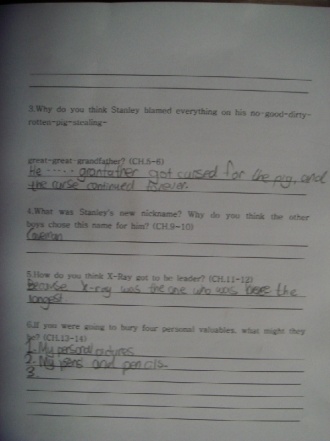 3.Why do you think Stanley blamed everything on his no-good-dirty-
rotten-pig-stealing-
great-great-grandfather? (CH.5-6)
He ..... grantather got cursed for the pig, and
the curse continued forever.
4.What was Stanley's new nickname? Why do you think the other
boys chose this name for him? (CH.9-10)
Caveman
5.How do you think X-Ray got to be leader? (CH.11-12)
Because x-ray was the one who was there the
longest
6.If you were going to bury four personal valuables, what might they
be? (CH.13-14)
1. My personal pictures
2. My pens and pencils
3.